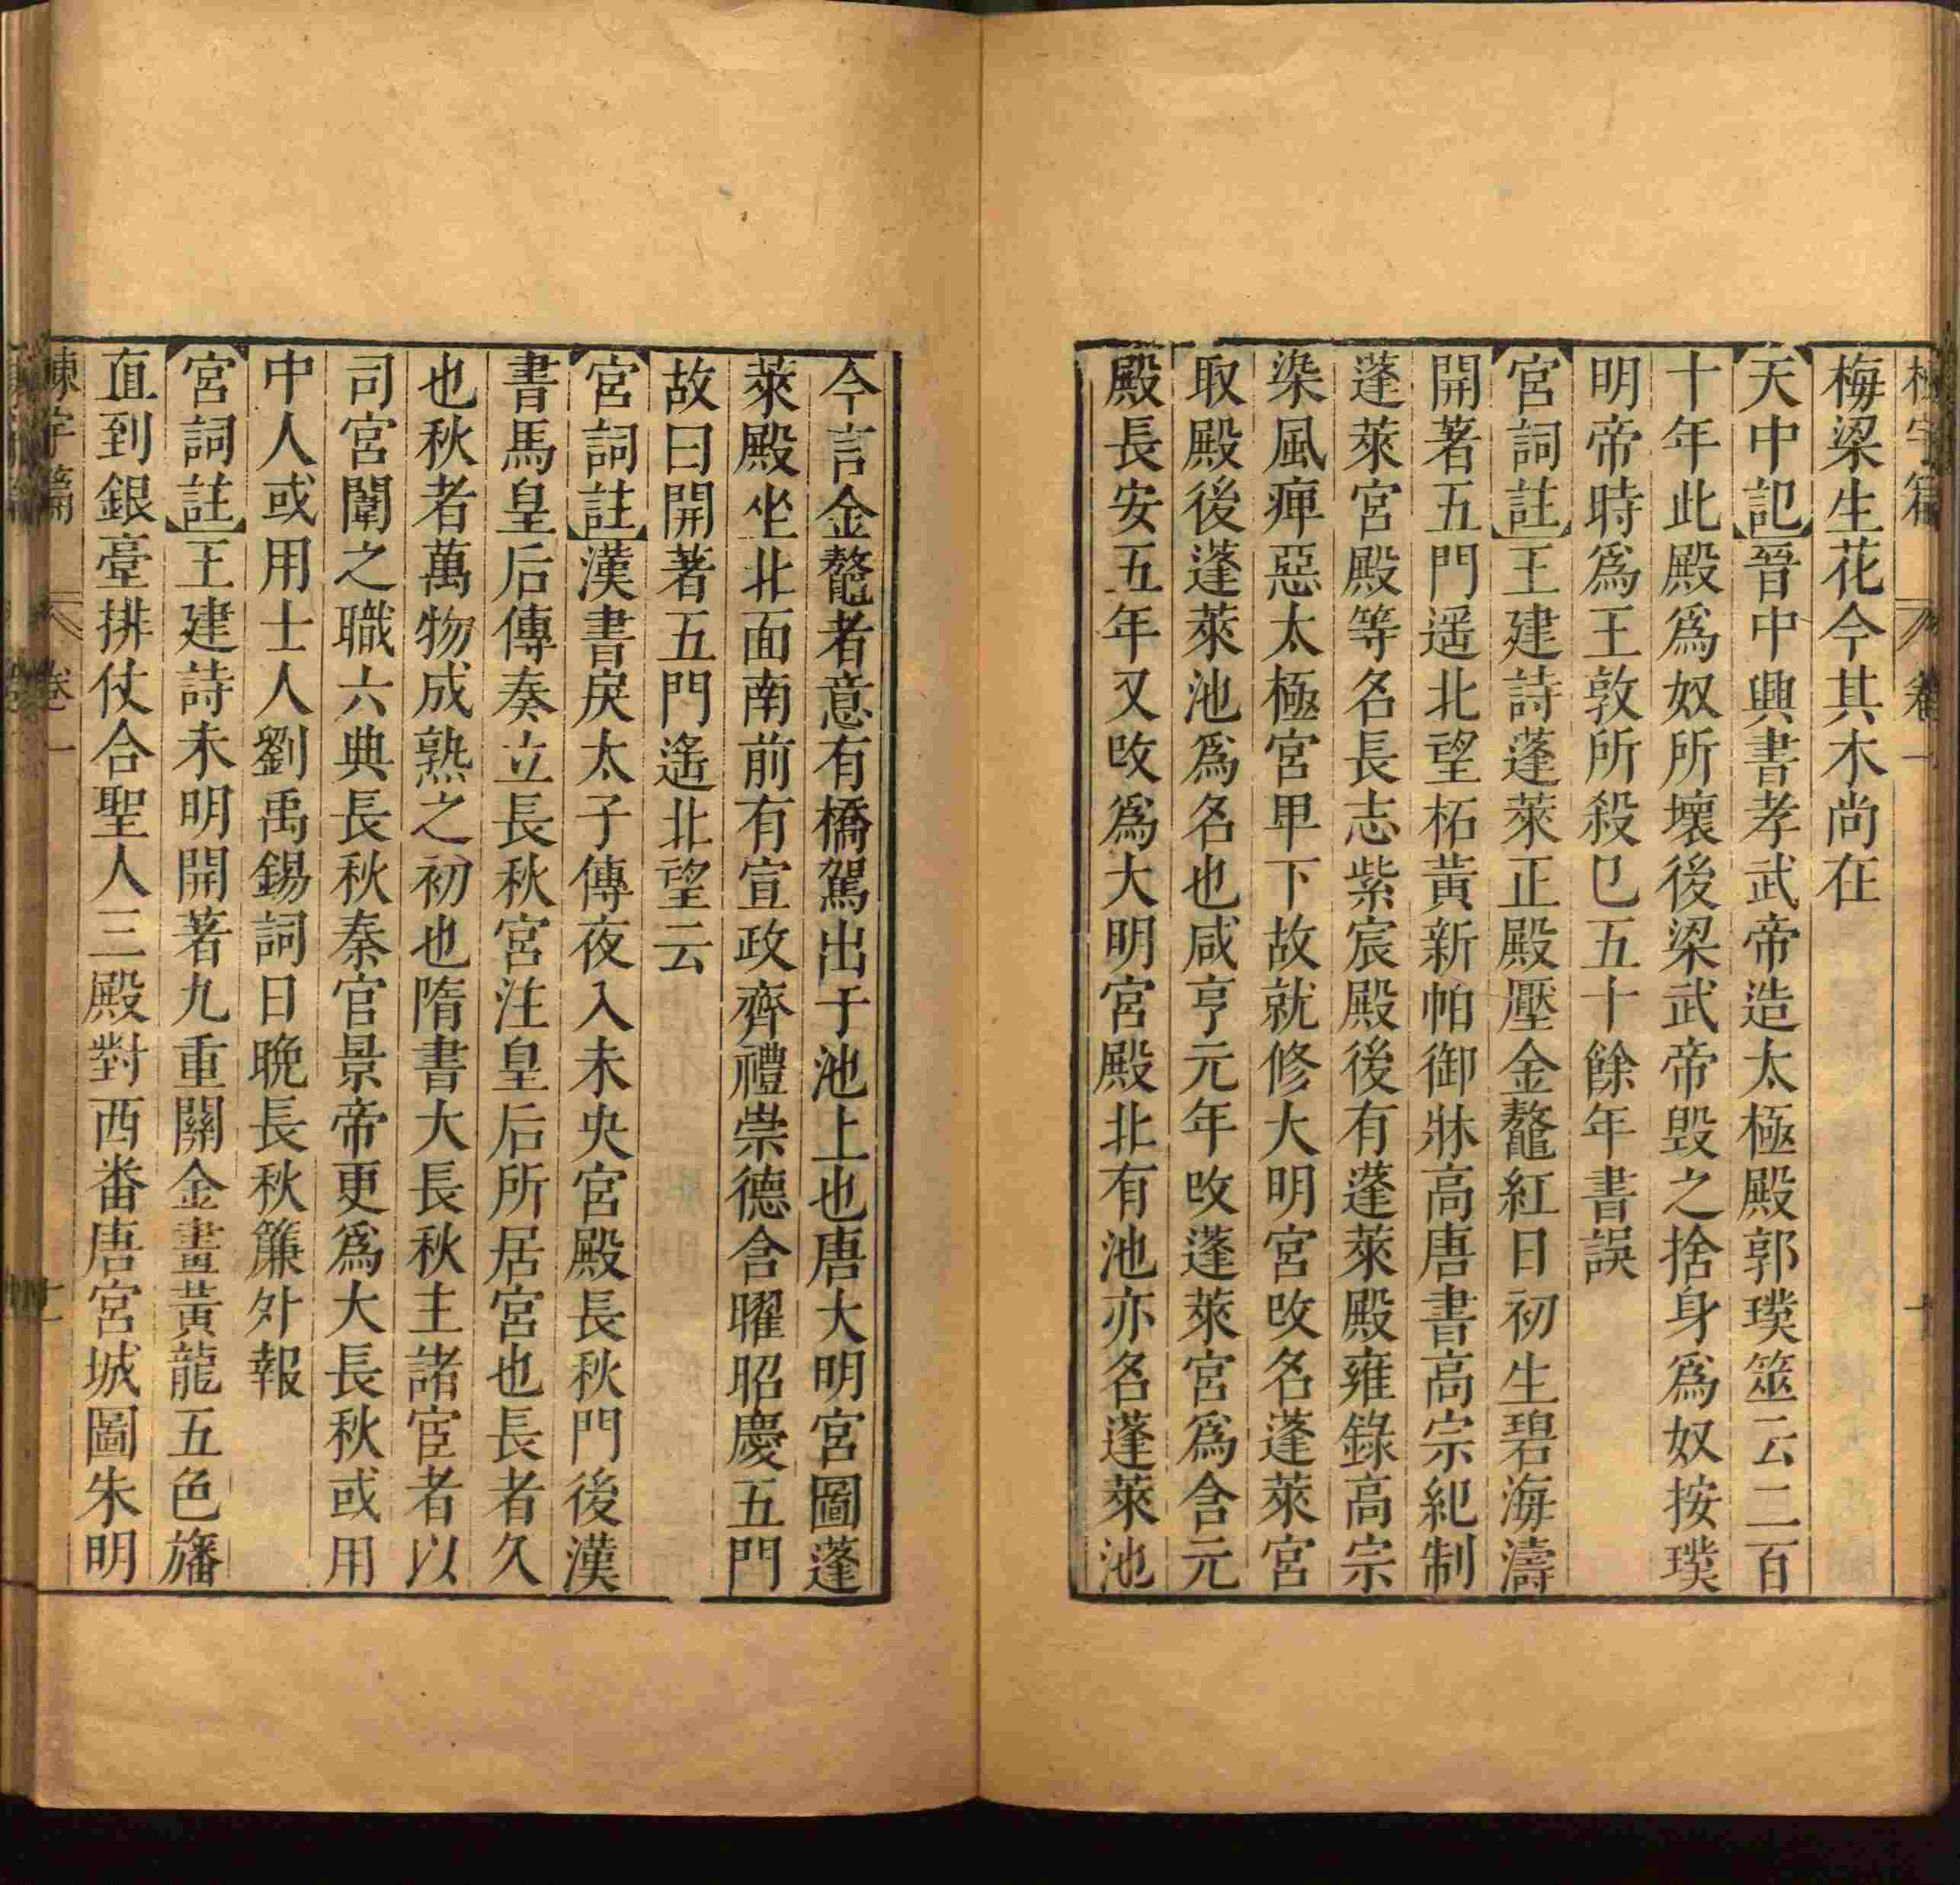 梅梁生花今其木尚在
天中記晉中興書孝武帝造太極殿郭璞筮云二百
十年此殿爲奴所壞後梁武帝毀之捨身爲奴按璞
明帝時爲王敦所殺已五十餘年書誤
宮詞註王建詩蓬萊正殿壓金鼇紅日初生碧海濤
開著五門遥北望柘黃新帕御牀高唐書高宗紀制
蓬萊宮殿等名長志紫宸殿後有蓬萊殿雍錄高宗
染風痺惡太極宮卑下故就修大明宮改名蓬萊宮
取殿後蓬萊池爲名也咸亨元年改蓬萊宮爲含元
殿長安五年又改爲大明宮殿北有池亦名蓬萊池
今言金鼇者意有橋駕出于池上也唐大明宮圖蓬
萊殿坐北面南前有宣政齊禮崇德含曜昭慶五門
故曰開著五門遙北望云
宮詞註漢書戾太子傳夜入未央宮殿長秋門後漢
書馬皇后傳奏立長秋宮注皇后所居宮也長者久
也秋者萬物成熟之初也隋書大長秋主諸宦者以
司宮闈之職六典長秋秦官景帝更爲大長秋或用
中人或用士人劉禹錫詞日晚長秋簾外報
宮詞註王建詩未明開著九重關金畫黃龍五色旛
直到銀臺排仗合聖人三殿對西番唐宮城圖朱明
卷一